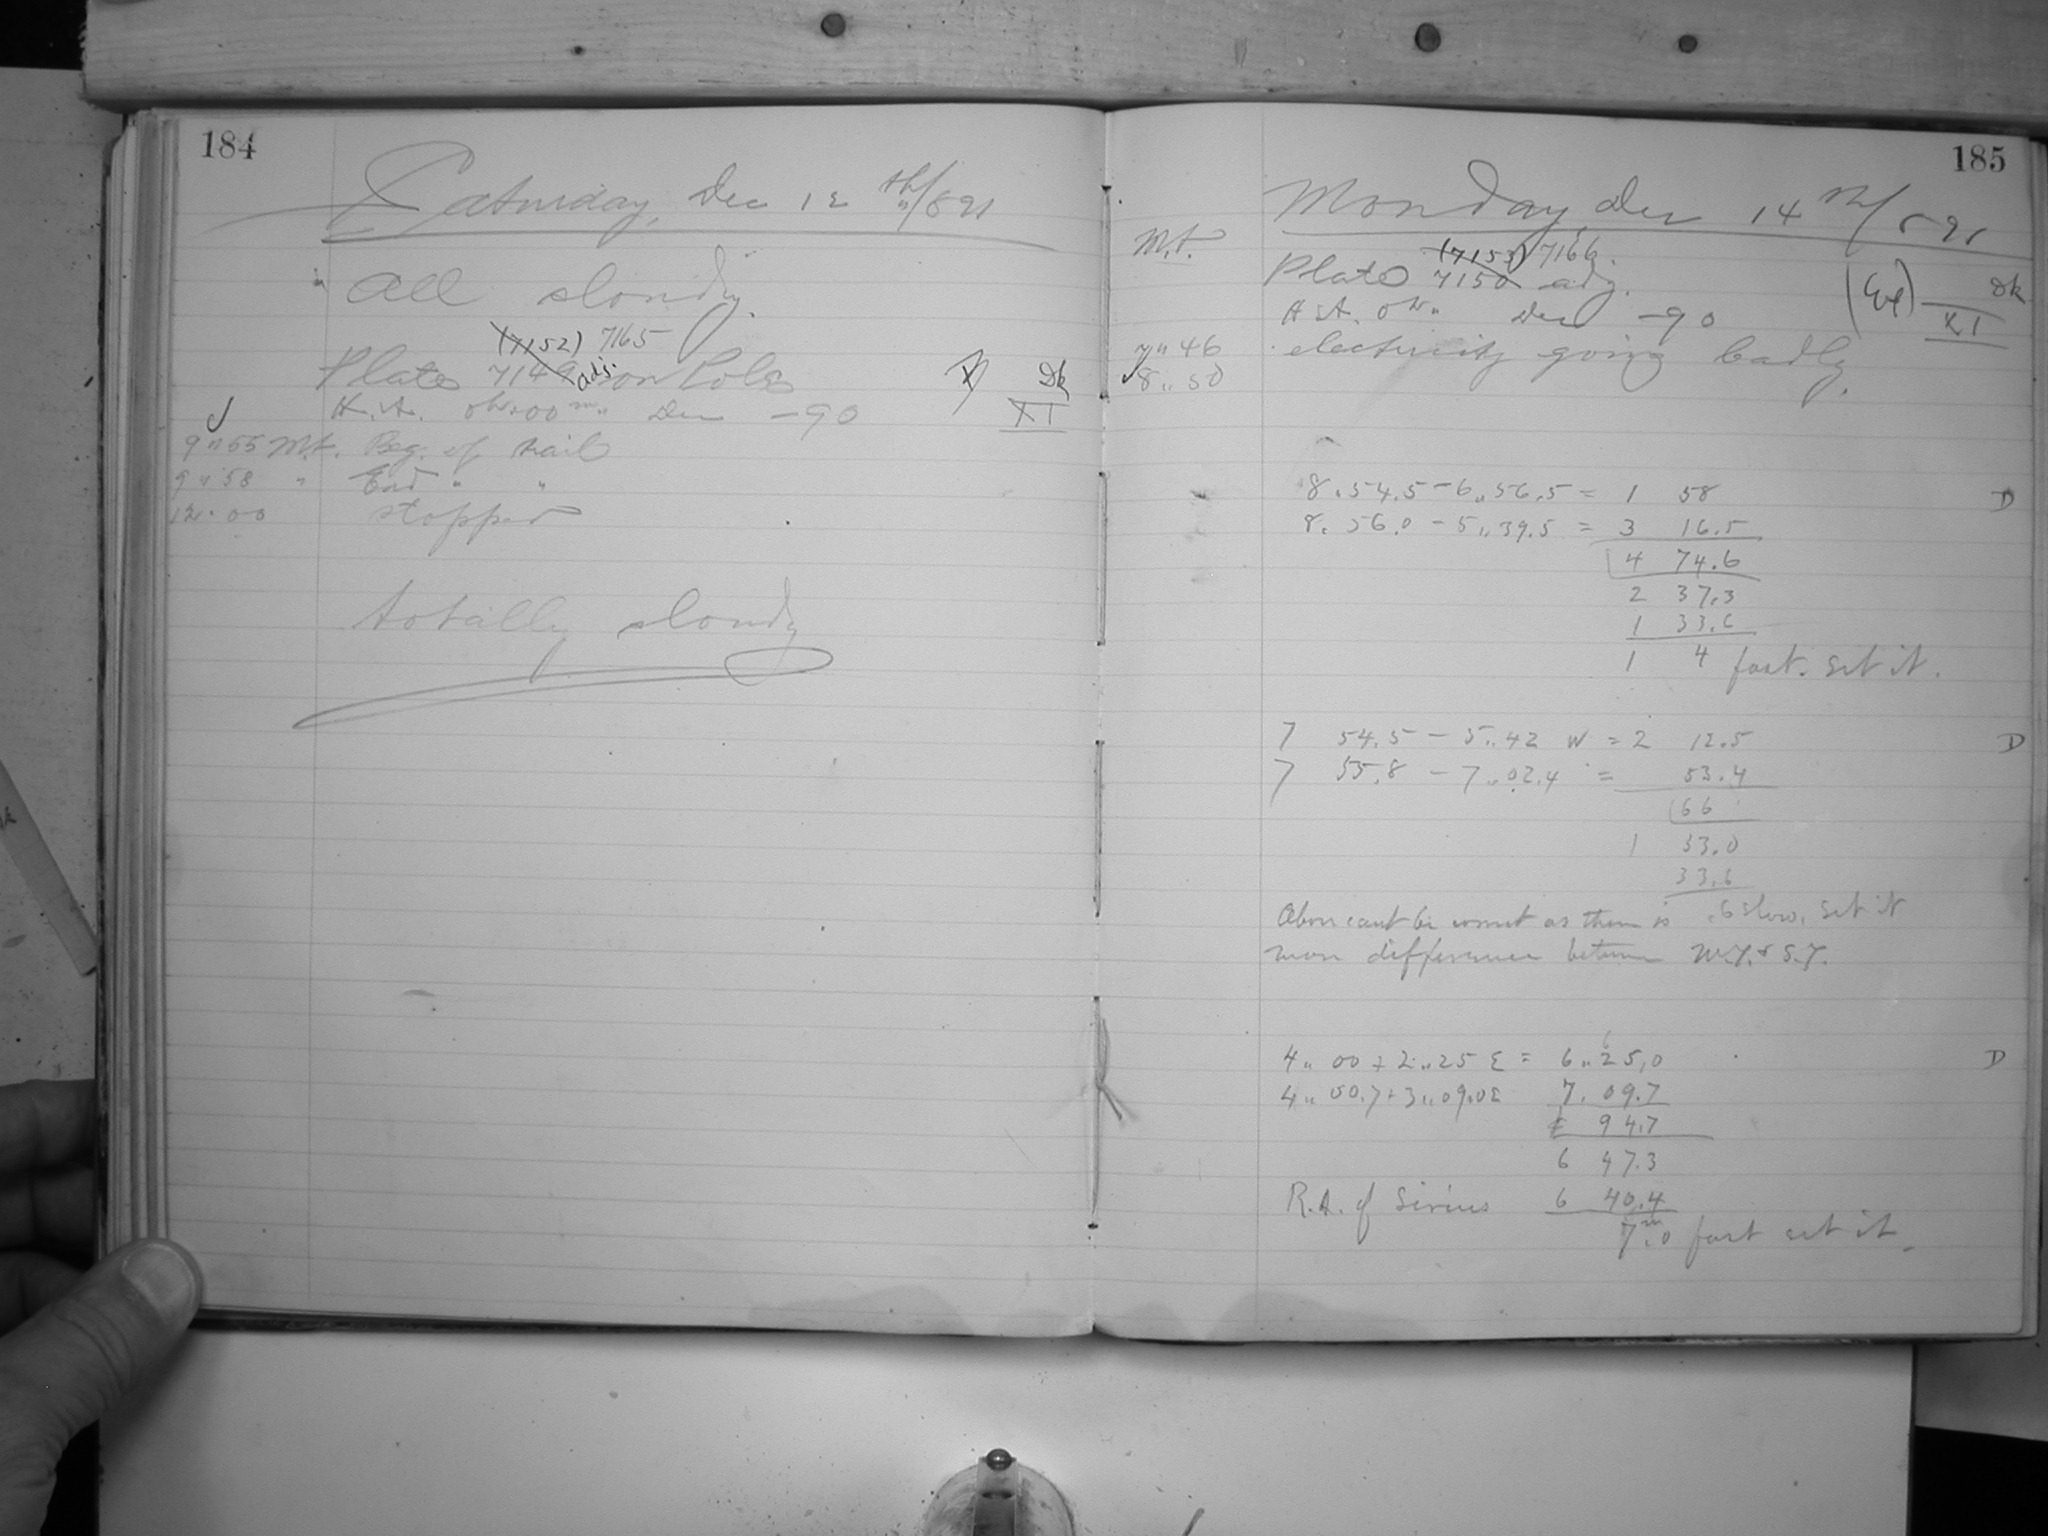 184
Saturday, Dec 12th/891
All cloudy.
(7152) 7165
Plate 7149 adj. on Pole Dk
H.A. 0h..00m.. Dec -90 XI
9"55 M.t. Beg. of trail
9"58 " End " "
12.00 stopped
totally cloudy
185
Monday Dec 14th/891
M.t.
(7153) 7166.
Plate 7150 adj. Dk
H.A. 0h.. Dec -90 XI
7"46 electricity going badly.
8..50
8.54.5 - 6..56.5 = 1 58 D
8.56.0 - 5..39.5 = 3 16.5
4 74.6
2 37.3
1 33.6
1 4 fast. Set it.
7 54.5 - 5..42 W = 2 12.5 D
7 55.8 - 7..02.4 = 53.4
66
1 33.0
33.6
.6 slow. Set it
Above cant be correct as there is
more difference between W.T. & S.T.
6
4.. 00 + 2..25 E = 6..25,0 D
4.. 00.7 + 3..09.0E 7. 09.7
94.7
6 47.3
R.A. of Sirius 6 40.4
7m.0 fast set it.